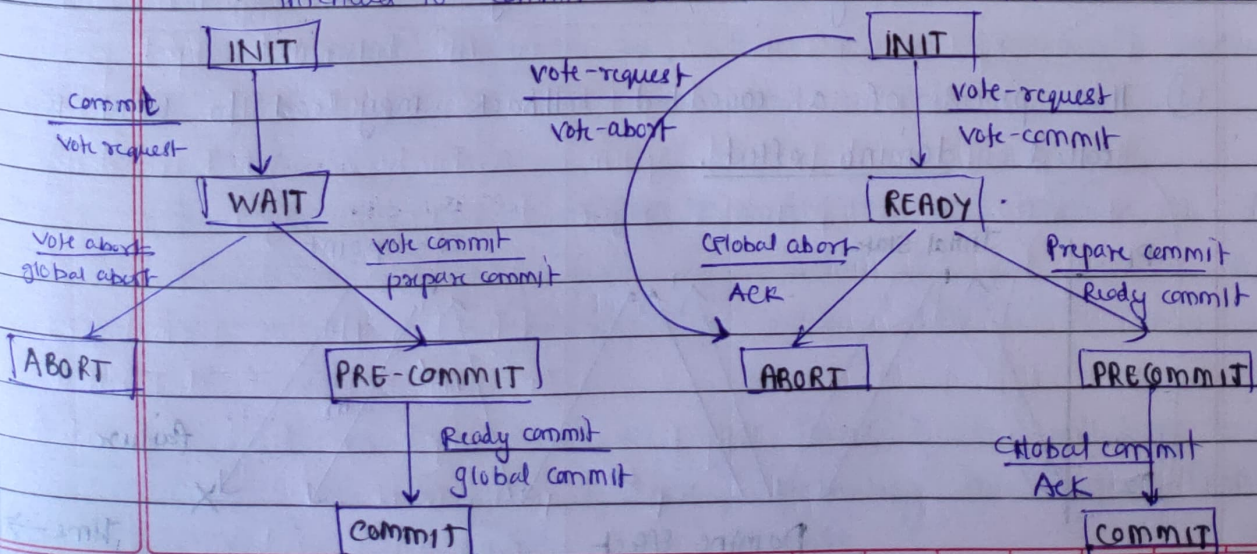 INIT
commit
vote request
WAIT
vote abort
global abort
vote commit
prepare commit
ABORT
PRE-COMMIT
Ready commit
global commit
COMMIT
INIT
vote-request
vote-abort
vote-request
vote-commit
READY
Global abort
ACK
Prepare commit
Ready commit
ABORT
PRECOMMIT
Global commit
ACK
COMMIT